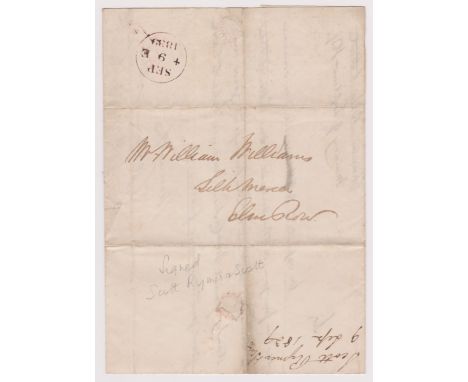 SEP
9 E
1839
Mr William Williams
Silk Mercer
Elm Row
Signed
Scott Rymer & Scott
Scott Rymer &
9 Sep 1839